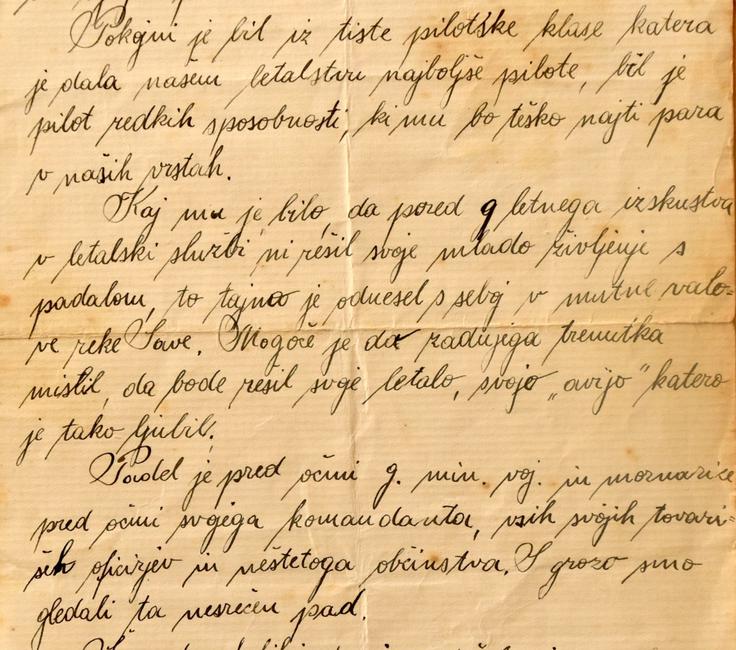 Pokojni je bil iz tiste pilotske klase katera
je dala našem letalstvu najboljše pilote, bil je
pilot redkih sposobnosti, ki mu bo teško najti para
v naših vrstah.
Kaj mu je bilo, da pored 9 letnega izskustva
v letalski službi ni rešil svoje mlado življenje s
padalom, to tajno je odnesel s seboj v mutne valo=
ve reke Save. Mogoče je do zadnjega trenutka
mislil, da bode rešil svoje letalo, svojo „avijo" katero
je tako ljubil.
Padel je pred očmi g. min. voj. in mornarice
pred očmi svojega komandanta, vsih svojih tovari=
ših oficirjev in neštetoga občinstva. S grozo smo
gledali ta nesrečen pad.